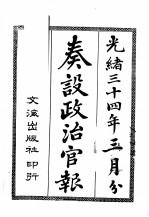 光緒三十四年三月分
奏設政治官報
文海出版社印行